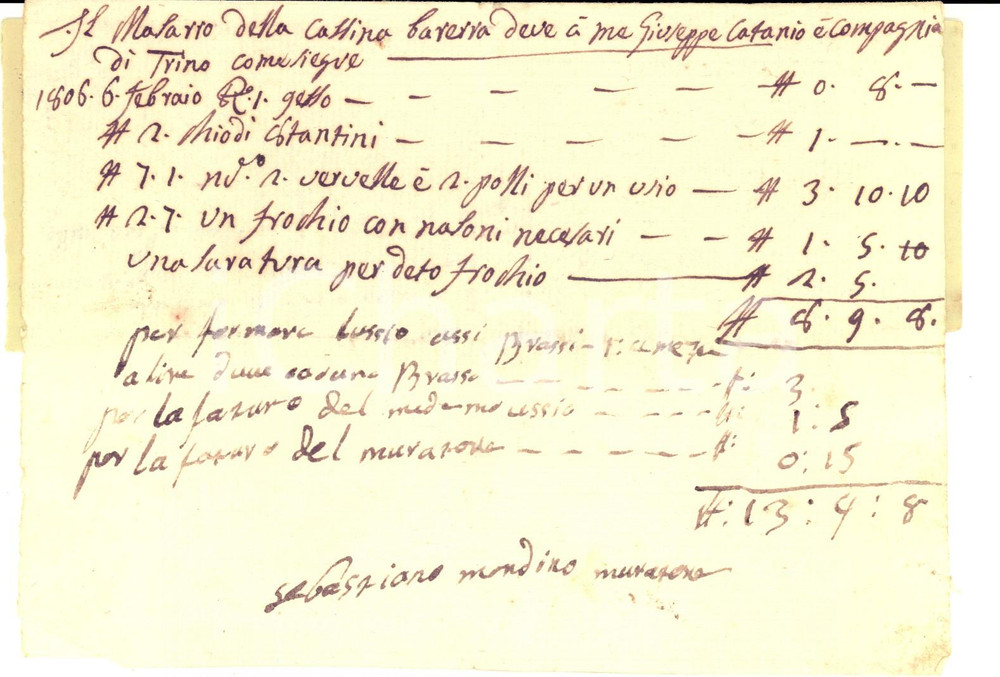 Il Masarro della Cassina baverra deve à me Giuseppe Catanio è Compagnia
di Trino come siegue
1806. 6. febraio R.1. gesso — — — — — # 0. 8. —
# 2. chiodi costantini — — — — — # 1. —. —
# 7. 1. nd.o 2. vervelle è 2. polli per un usio — # 3. 10. 10
# 2. 7. un frochio con nasoni necesari — — # 1. 5. 10
una saratura per deto frochio — # 2. 5.
# 8. 9. 8.
per formare lussio assi Brassi
a lire due caduno Brasso — — — — #: 3.
per la fatura del medemo ussio — — — #: 1: 5
per la fatura del muratore — — — — — #: 0: 15
#: 13: 9: 8
sebastiano mondino muratore